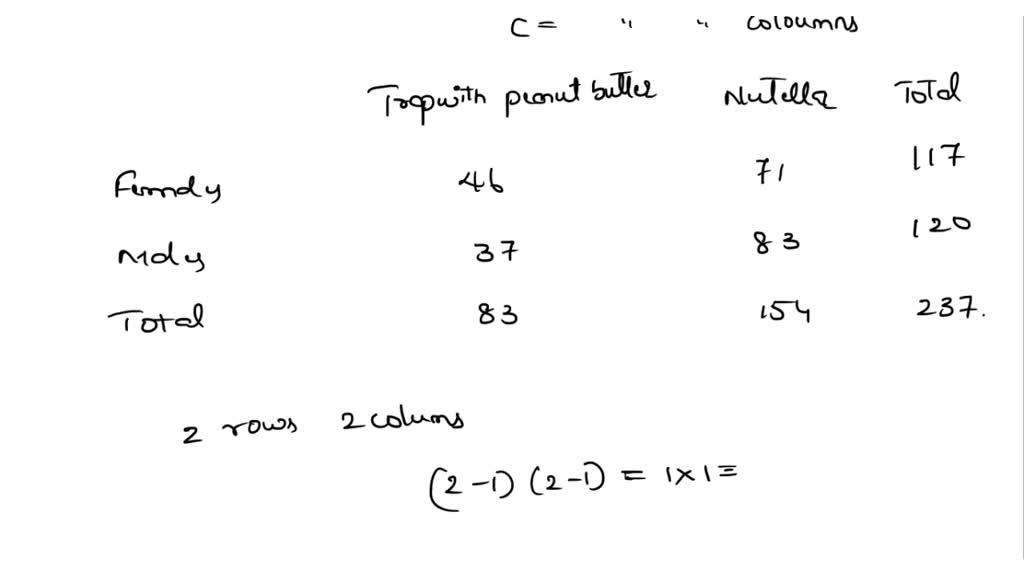 C = " " coloumns
with peanut butter Nutella Total
46 71 117
37 83 120
Total 83 154 237.
2 rows 2 colums
(2-1) (2-1) = 1x1=